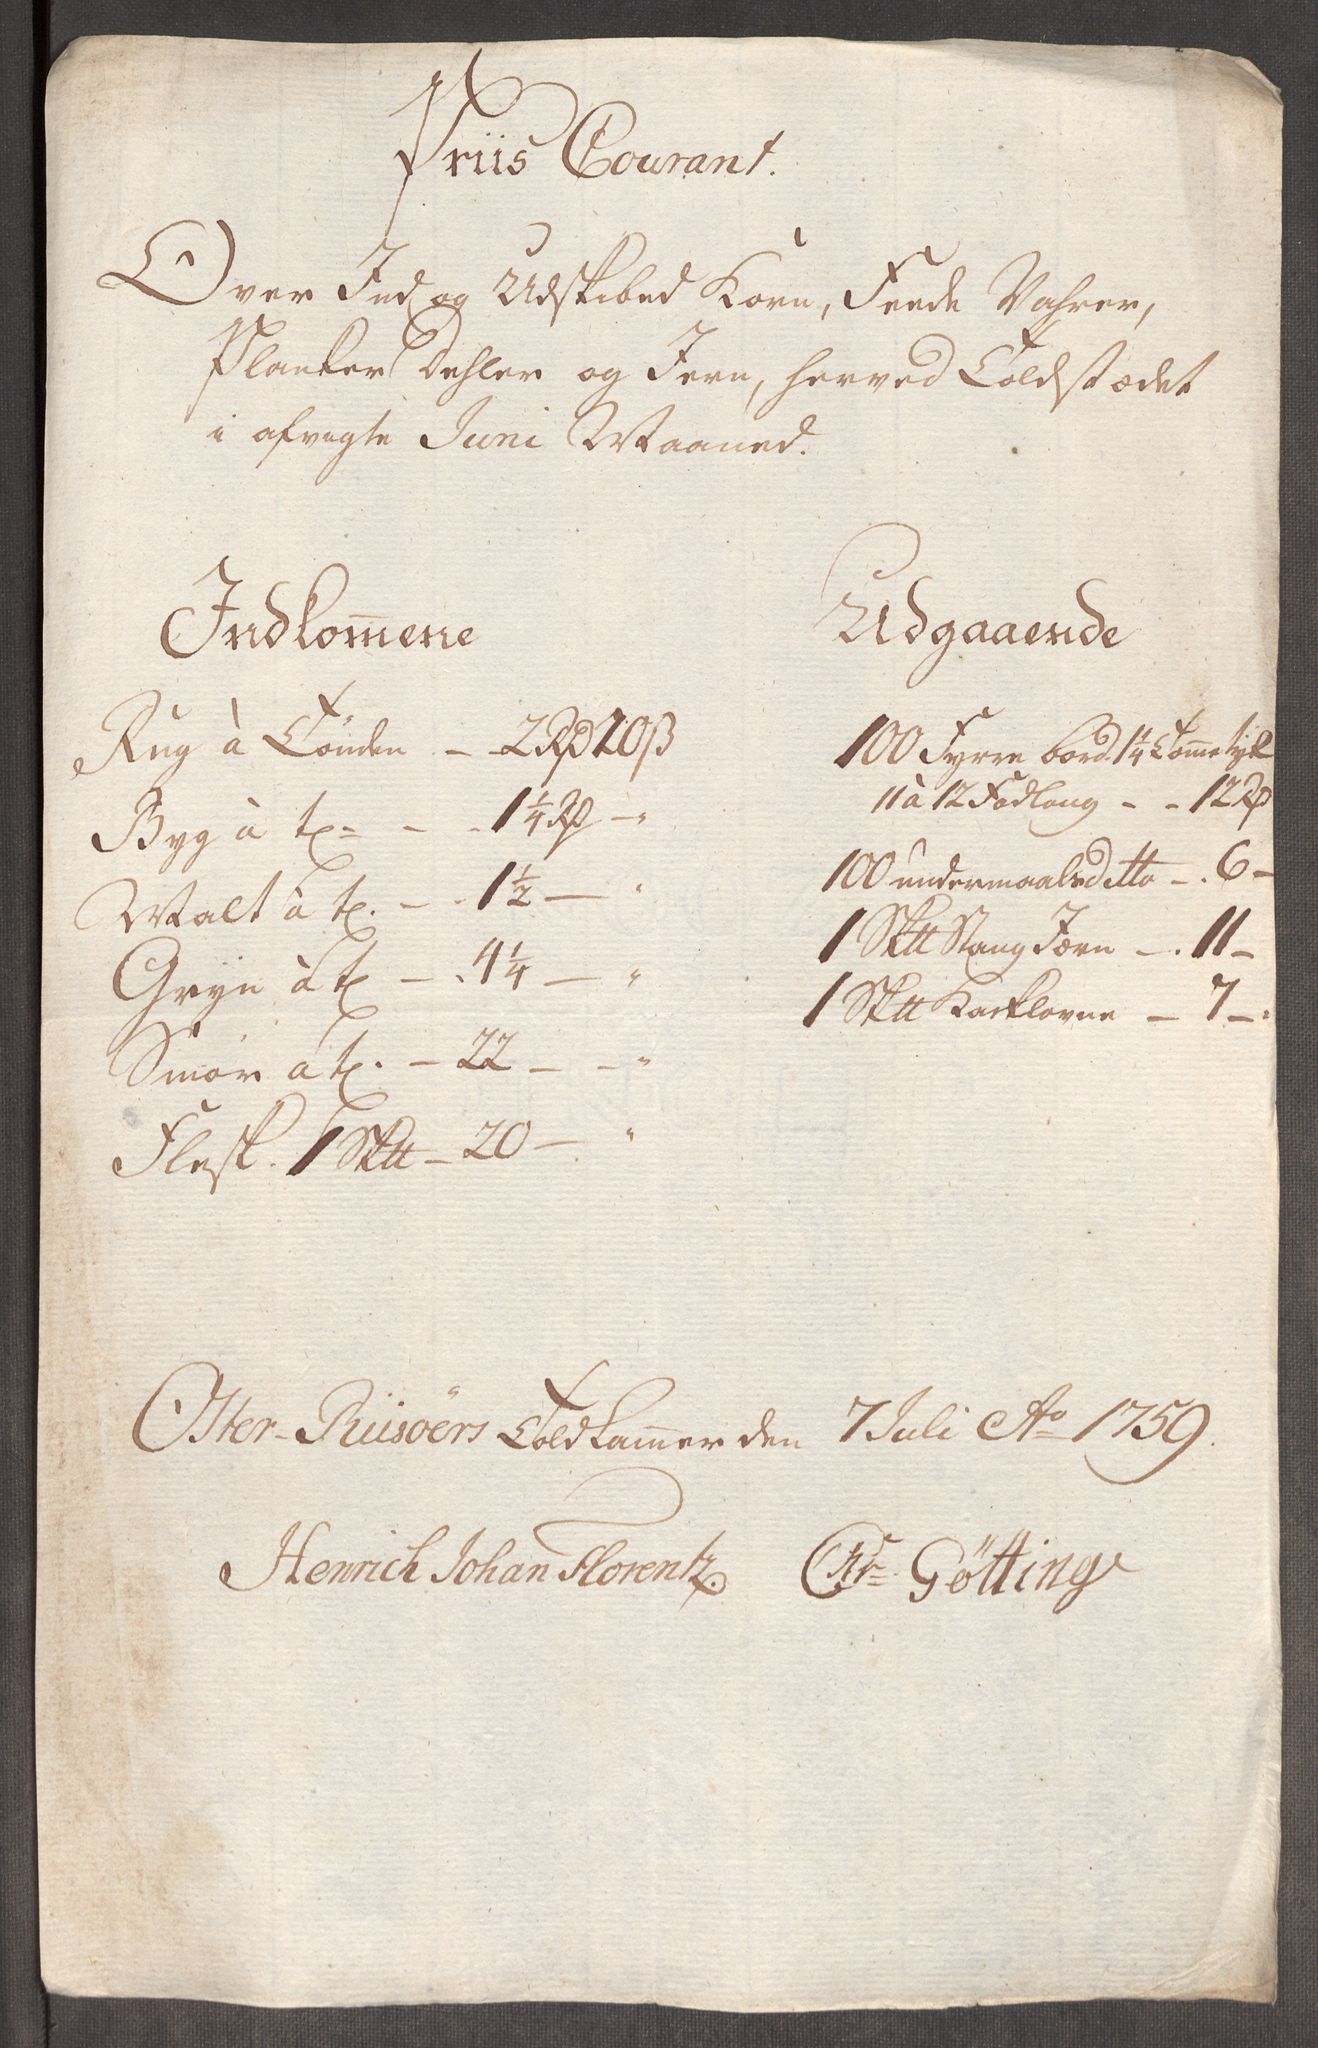 Priis Courant.
Over Ind og Udskibed Korn, Feede Vahrer,
Planker Dehler og Jern, herved Toldstædet
i afvigte Juni Maaned.
Indkom̅ene
Rug à Tönden - 2 Rd 20 ß
Byg à t. - - 1 1/4 Rd - "
Malt à t. - - 1 1/2 - "
Gryn à t. - - 4 1/4 - "
Smör à t. - 22 - - "
Flesk. 1 Sk℔ - 20 - "
Udgaaende
100 Fyrre bord. 1 1/4 Tomme tyk
11 à 12 Fod lang - - 12 Rd
100 undermaals ditto - . 6 -
1 Sk℔ Stang Jærn - . 11 -
1 Sk℔ Kaklovne - 7 - "
Oster-Riisöers Toldkammer den 7 Juli Ao 1759.
Henrich Johan Florentz. Chr= Götting